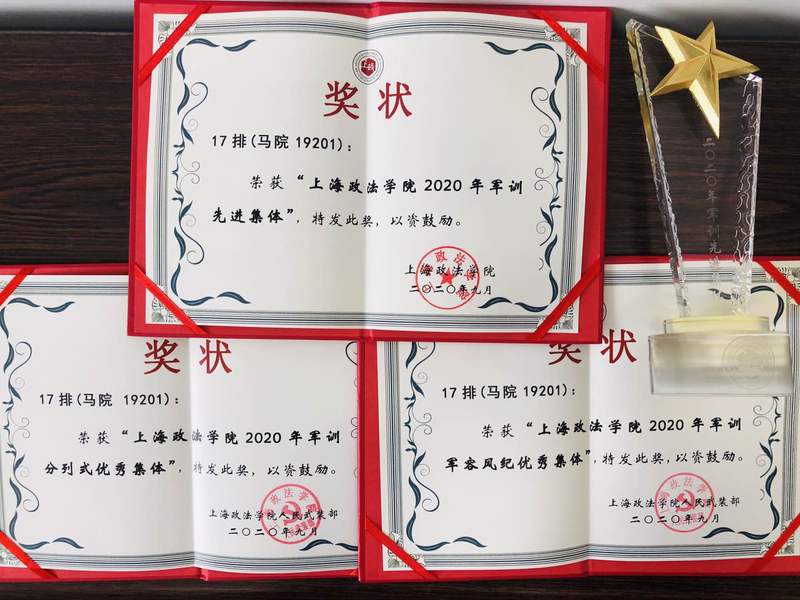 奖状
17排(马院 19201)：
荣获“上海政法学院 2020 年军训
先进集体”，特发此奖，以资鼓励。
上海政法学院
二〇二〇年九月
二〇二〇年军训先进
奖状
17排(马院 19201)：
荣获“上海政法学院 2020 年军训
分列式优秀集体”，特发此奖，以资鼓励。
上海政法学院人民武装部
二〇二〇年九月
奖状
17排(马院 19201)：
荣获“上海政法学院 2020 年军训
军容风纪优秀集体”，特发此奖，以资鼓励。
上海政法学院人民武装部
二〇二〇年九月